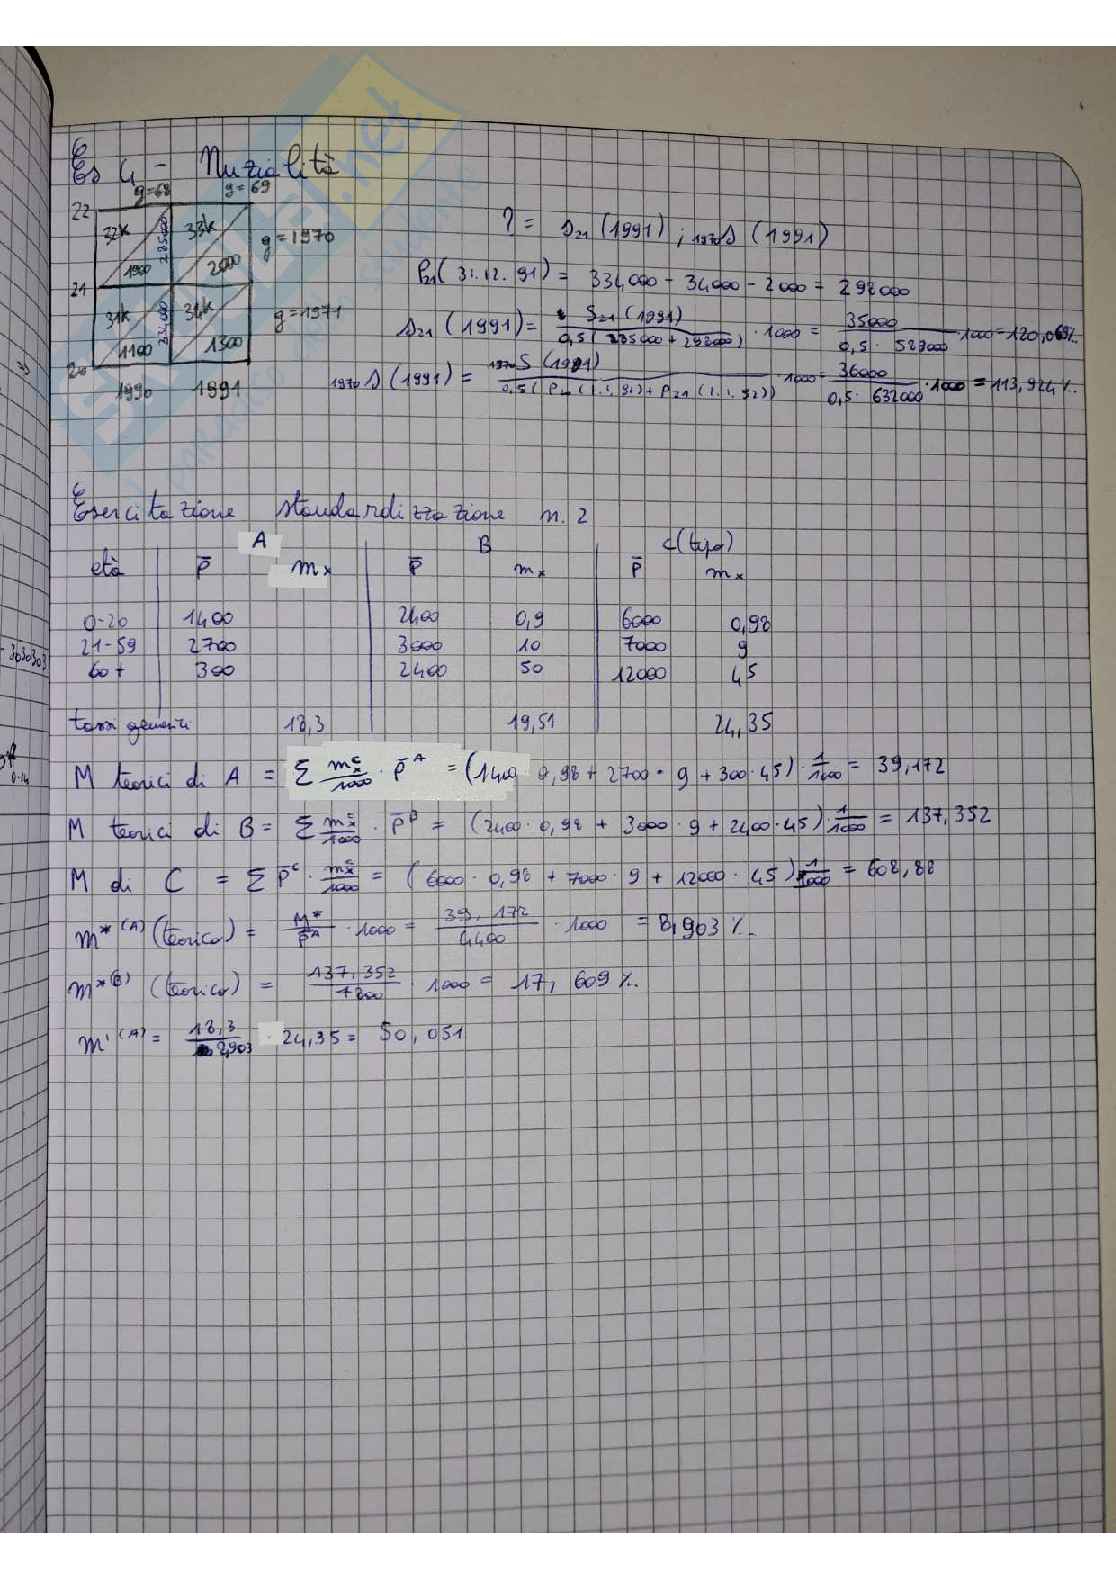 Es 4 - Nuzialità
g=68 g=69
22
32k 33k
g=1970
? = s₂₁ (1991) ; ₁₉₇₀s (1991)
1900 2000
P₂₁ (31.12.91) = 334000 - 34000 - 2000 = 298000
21
31k 34k
g=1971
s₂₁ (1991) = S₂₁ (1991) / 0,5 (235000 + 292000) · 1000 = 35000 / 0,5 · 527000 · 1000 =
1100 1500
20
1990 1991
₁₉₇₀s (1991) = ₁₉₇₀S (1991) / · 1000 = 36000 / 0,5 · 632000 · 1000 = 113,924 ‰
Esercitazione standardizzazione n. 2
A B C (tipo)
età P̄ mx P̄ mx P̄ mx
0-20 1400 2400 0,9 6000 0,98
21-59 2700 3000 10 7000 9
60+ 300 2400 50 12000 45
tassi generici 18,3 19,51 24,35
M teorici di A = Σ mxᶜ/1000 · P̄ᴬ = (1400 0,98 + 2700 · 9 + 300 · 45) · 1/1000 = 39,172
M teorici di B = Σ mxᶜ/1000 · P̄ᴮ = (2400 · 0,98 + 3000 · 9 + 2400 · 45) · 1/1000 = 137,352
M di C = Σ P̄ᶜ · mxᶜ/1000 = (6000 · 0,98 + 7000 · 9 + 12000 · 45) 1/1000 = 608,88
m*⁽ᴬ⁾ (teorico) = M*/P̄ᴬ · 1000 = 39,172/4400 · 1000 = 8,903 ‰
m*⁽ᴮ⁾ (teorico) = 137,352/7800 · 1000 = 17,609 ‰
m'⁽ᴬ⁾ = 18,3/8,903 · 24,35 = 50,051